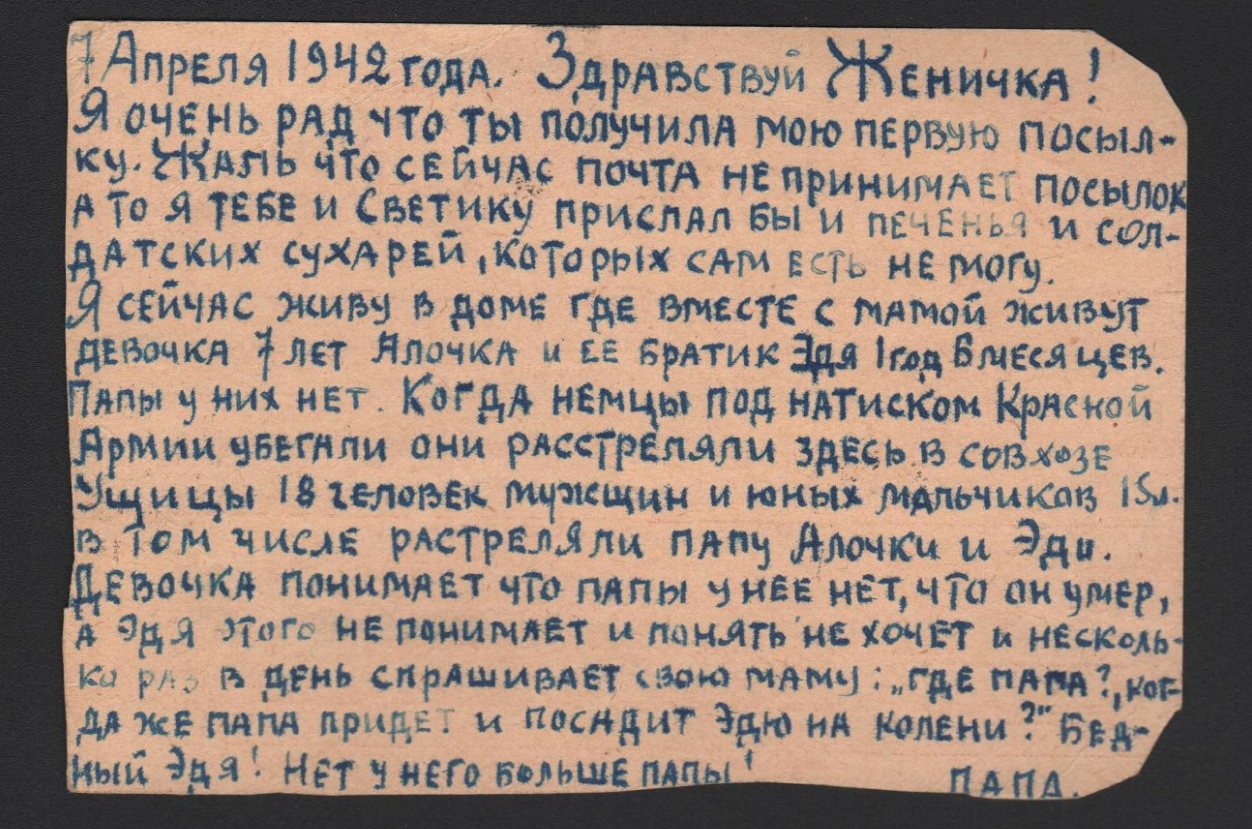 7 Апреля 1942 года. Здравствуй Женичка!
Я очень рад что ты получила мою первую посыл-
ку. Жаль что сейчас почта не принимает посылок
а то я тебе и Светику прислал бы и печенья и сол-
датских сухарей, которых сам есть не могу.
Я сейчас живу в доме где вместе с мамой живут
девочка 7 лет Алочка и ее братик Эдя 1 год 6 месяцев.
Папы у них нет. Когда немцы под натиском Красной
Армии убегали они расстреляли здесь в совхозе
Ущицы 18 человек мужщин и юных мальчиков 15 л.
в том числе растреляли папу Алочки и Эди.
Девочка понимает что папы у нее нет, что он умер,
а Эдя этого не понимает и понять не хочет и несколь-
ко раз в день спрашивает свою маму: „где папа?, ког-
да же папа придет и посадит Эдю на колени?" Бед-
ный Эдя! Нет у него больше папы! Папа.